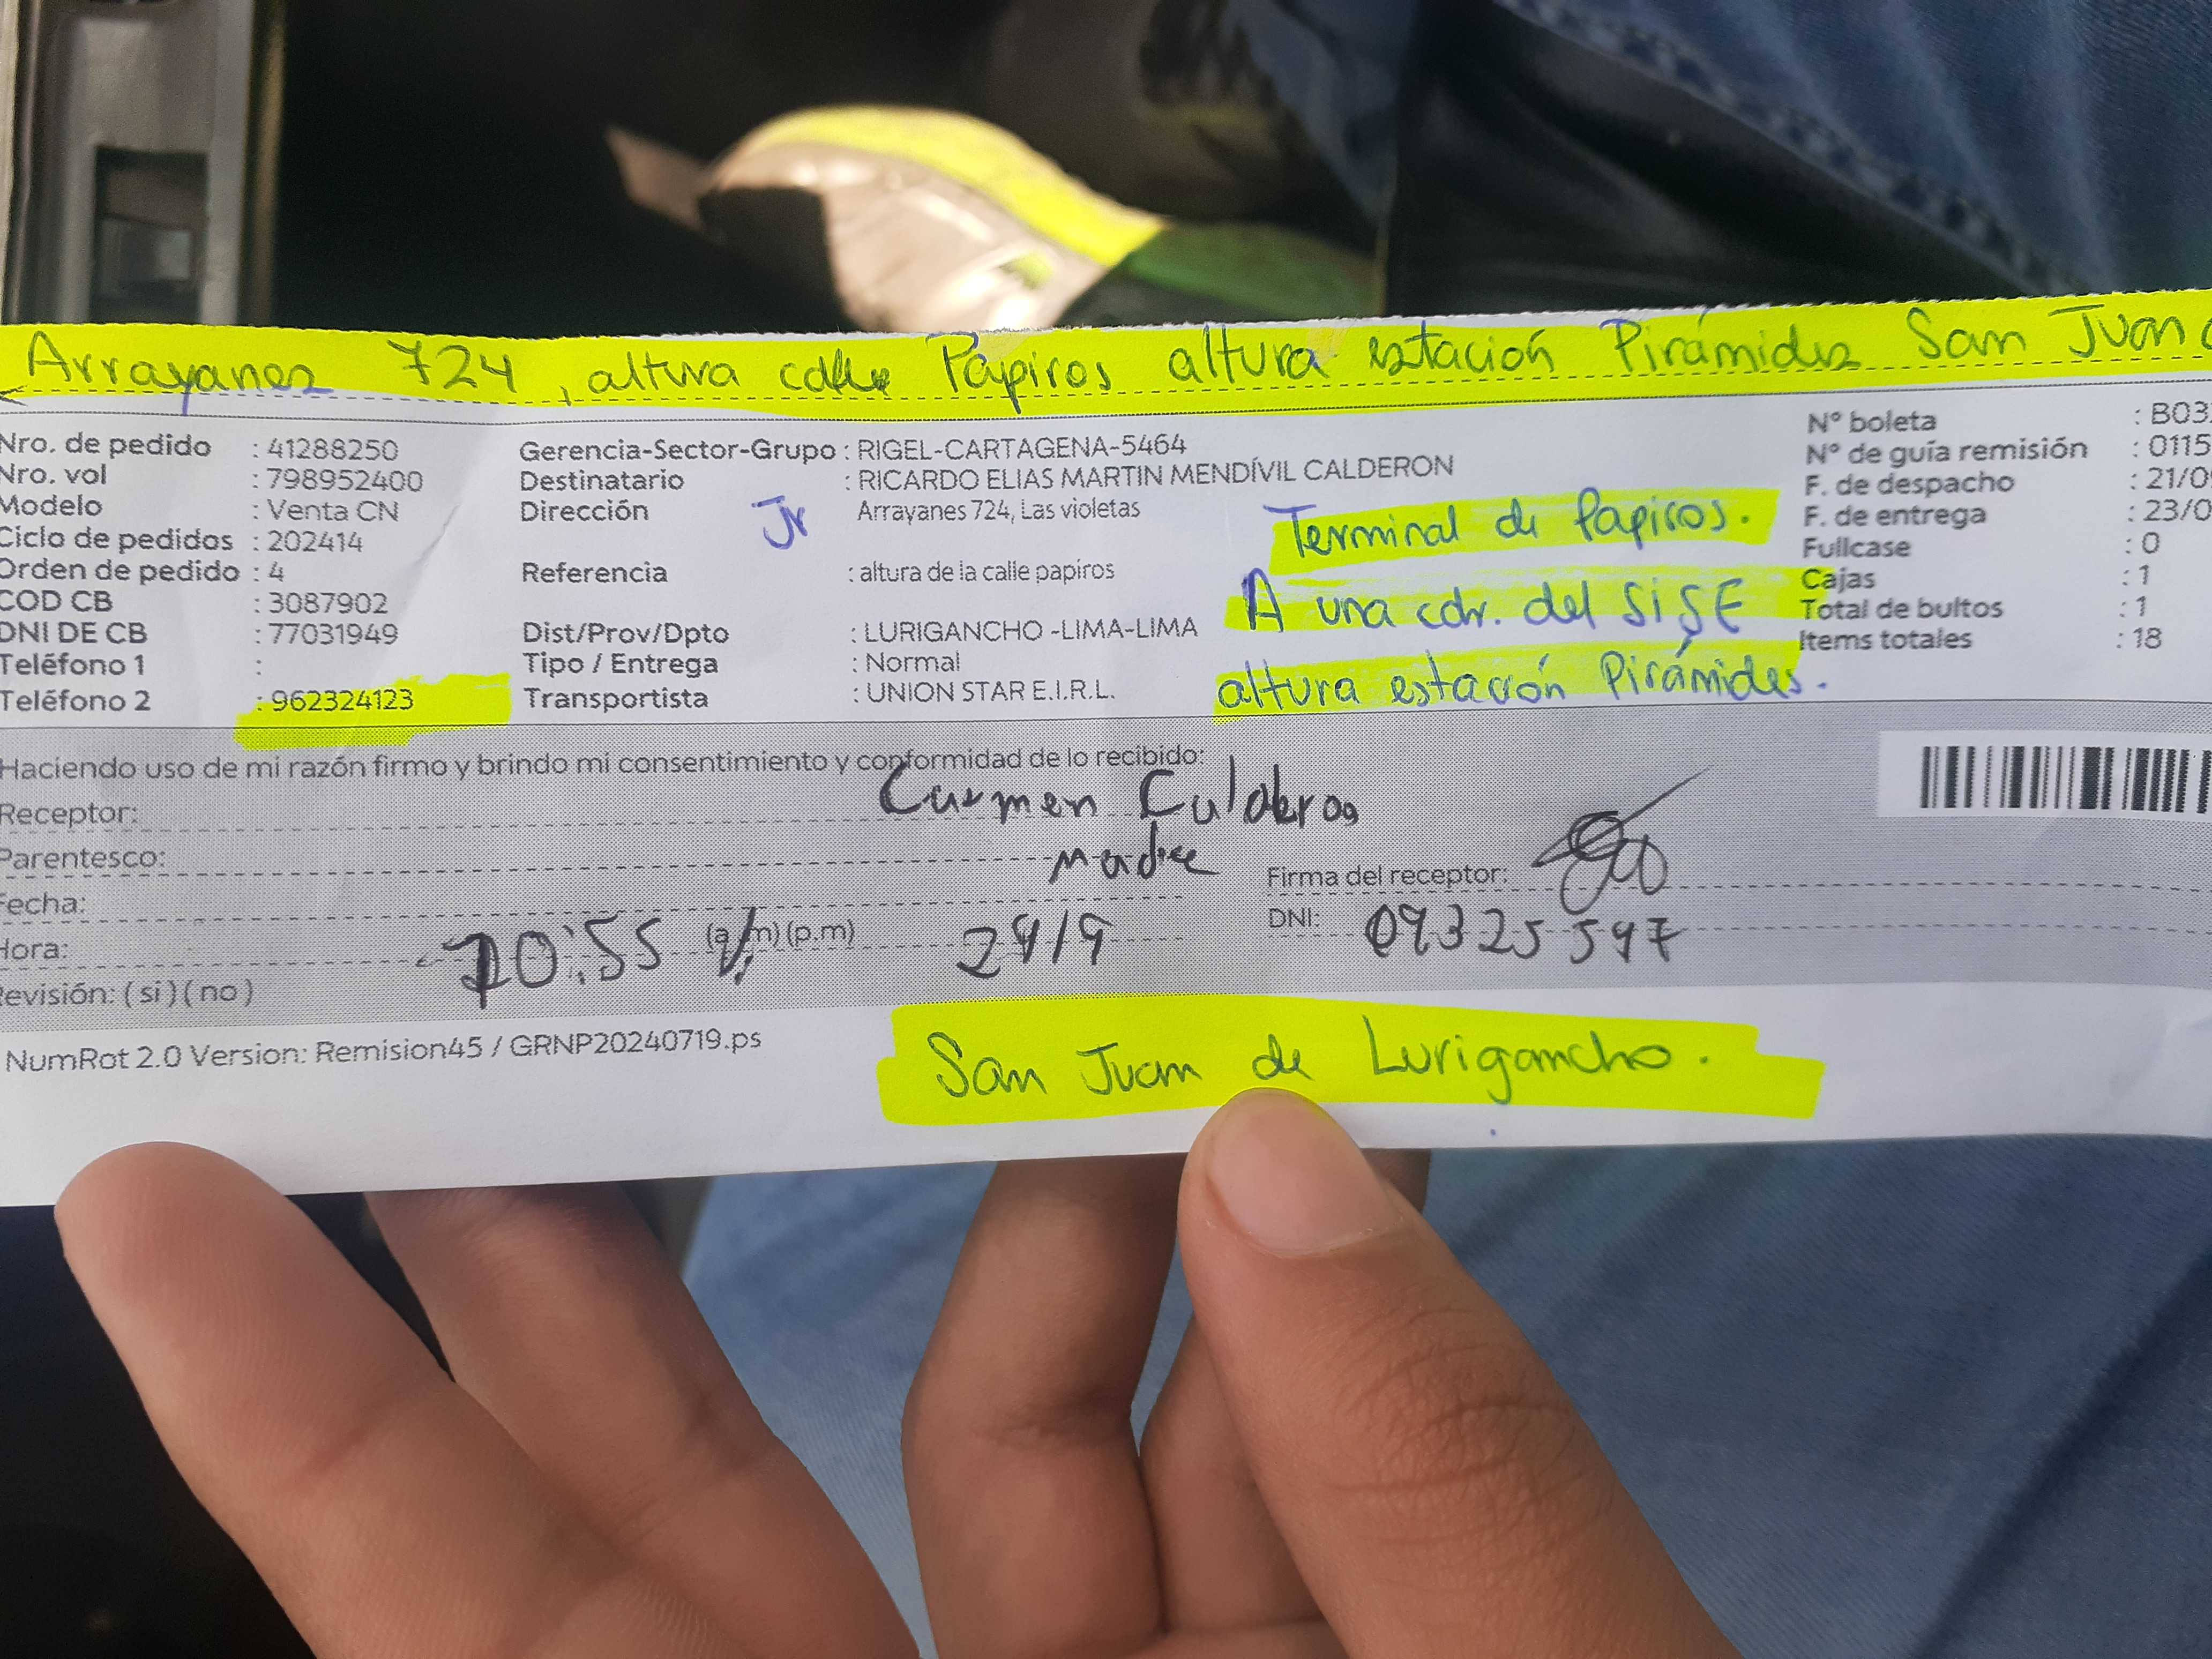 Arrayanes 724, altura calle Papiros altura estación Pirámides San Juan
Nro. de pedido : 41288250
Nro. vol : 798952400
Modelo : Venta CN
Ciclo de pedidos : 202414
Orden de pedido : 4
COD CB : 3087902
DNI DE CB : 77031949
Teléfono 1 :
Teléfono 2 : 962324123
Gerencia-Sector-Grupo : RIGEL-CARTAGENA-5464
Destinatario : RICARDO ELIAS MARTIN MENDÍVIL CALDERON
Dirección Jr Arrayanes 724, Las violetas
Referencia : altura de la calle papiros
Dist/Prov/Dpto : LURIGANCHO -LIMA-LIMA
Tipo / Entrega : Normal
Transportista : UNION STAR E.I.R.L.
Terminal de Papiros.
A una cdr. del SISE
altura estación Pirámides.
N° boleta : B03
N° de guía remisión : 0115
F. de despacho : 21/0
F. de entrega : 23/0
Fullcase : 0
Cajas : 1
Total de bultos : 1
Items totales : 18
Haciendo uso de mi razón firmo y brindo mi consentimiento y conformidad de lo recibido:
Receptor: Carmen
Parentesco: Madre
Firma del receptor:
Fecha:
DNI: 09325597
Hora: 10:55 (a.m) (p.m) 24/9
Revisión: ( si ) ( no )
NumRot 2.0 Version: Remision45 / GRNP20240719.ps
San Juan de Lurigancho.